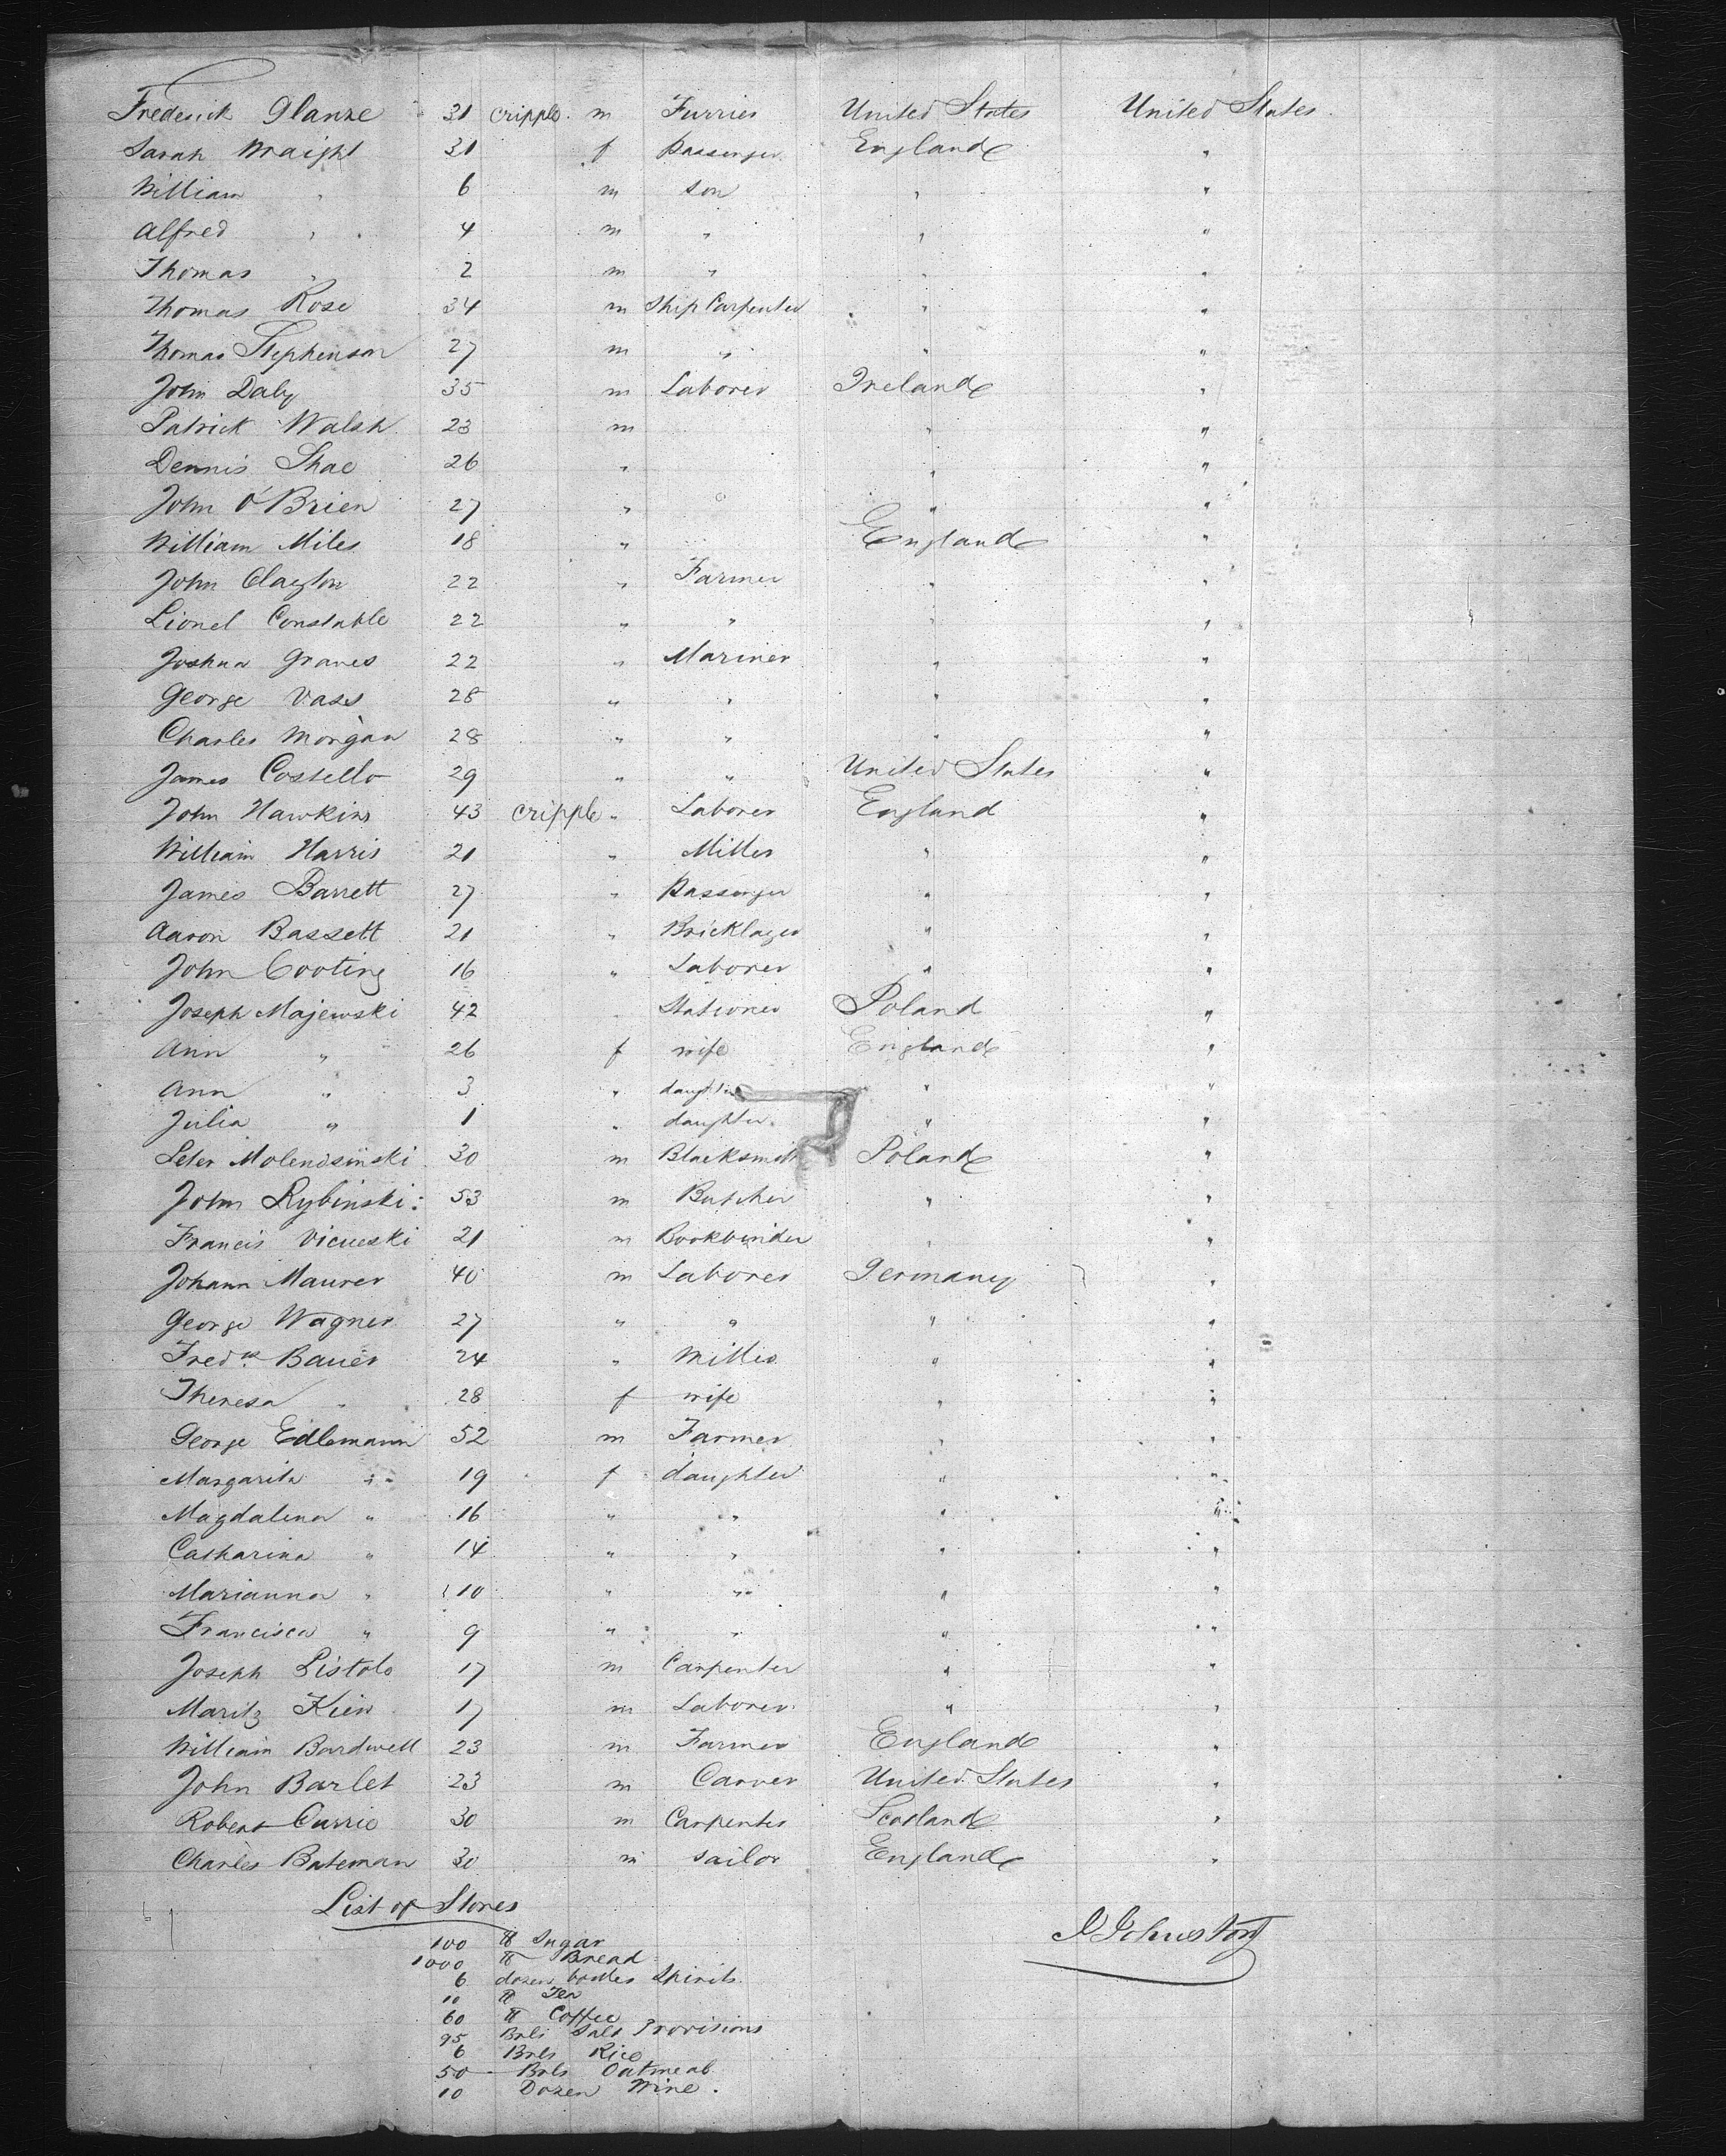 Frederick Glanze 31 cripple m Furrier United States United States
Sarah Wraight 31 f Passenger England "
William " 6 m son " "
Alfred " 4 m " " "
Thomas " 2 m " " "
Thomas Rose 34 m Ship Carpenter " "
Thomas Stephenson 27 m " " "
John Daly 35 m Laborer Ireland "
Patrick Walsh 23 m " "
Dennis Shae 26 " " "
John O'Brien 27 " " "
William Miles 18 " England "
John Clayton 22 " Farmer " "
Lionel Constable 22 " " " "
Joshua Graves 22 " Mariner " "
George Vass 28 " " " "
Charles Morgan 28 " " " "
James Costello 29 " " United States "
John Hawkins 43 cripple " Laborer England "
William Harris 21 " Miller " "
James Barrett 27 " Passenger " "
Aaron Bassett 21 " Bricklayer " "
John Cooting 16 " Laborer " "
Joseph Majewski 42 " Stationer Poland "
Ann " 26 f wife England "
Ann " 3 " daughter " "
Julia " 1 " daughter " "
Peter Molendsinski 30 m Blacksmith Poland "
John Rybinski 53 m Butcher " "
Francis 21 m Bookbinder " "
Johann Maurer 40 m Laborer Germany "
George Wagner 27 " " " "
Fredk Bauer 24 " Miller " "
Theresa " 28 f wife " "
George Edlemann 52 m Farmer " "
Margarita " 19 f daughter " "
Magdalena " 16 " " " "
Catharina " 14 " " " "
Marianna " 10 " " " "
Francisca " 9 " " " "
Joseph Listolo 17 m Carpenter " "
Maritz Kien 17 m Laborer " "
William Bardwell 23 m Farmer England "
John Barlet 23 m Carver United States "
Robert Currie 30 m Carpenter Scotland "
Charles Bateman 30 m sailor England "
List of Stores
J Johnston
100 lb Sugar
1000 lb Bread
6 dozen bottles Spirits
10 lb Tea
60 lb Coffee
95 Brls Salt Provisions
6 Brls Rice
50 Brls Oatmeal
10 Dozen Wine.